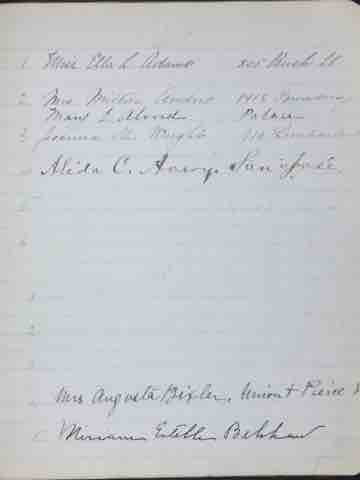 1. Miss Ella L Adams Bush St
2. Mrs Milton Andros 1418
Mary L Alvord Palace
3. Joanna M. Wright
Alida C. Avery. San José.
3
2
Mrs Augusta Bixler, Union & Pierce
Miriam Estelle Belshaw